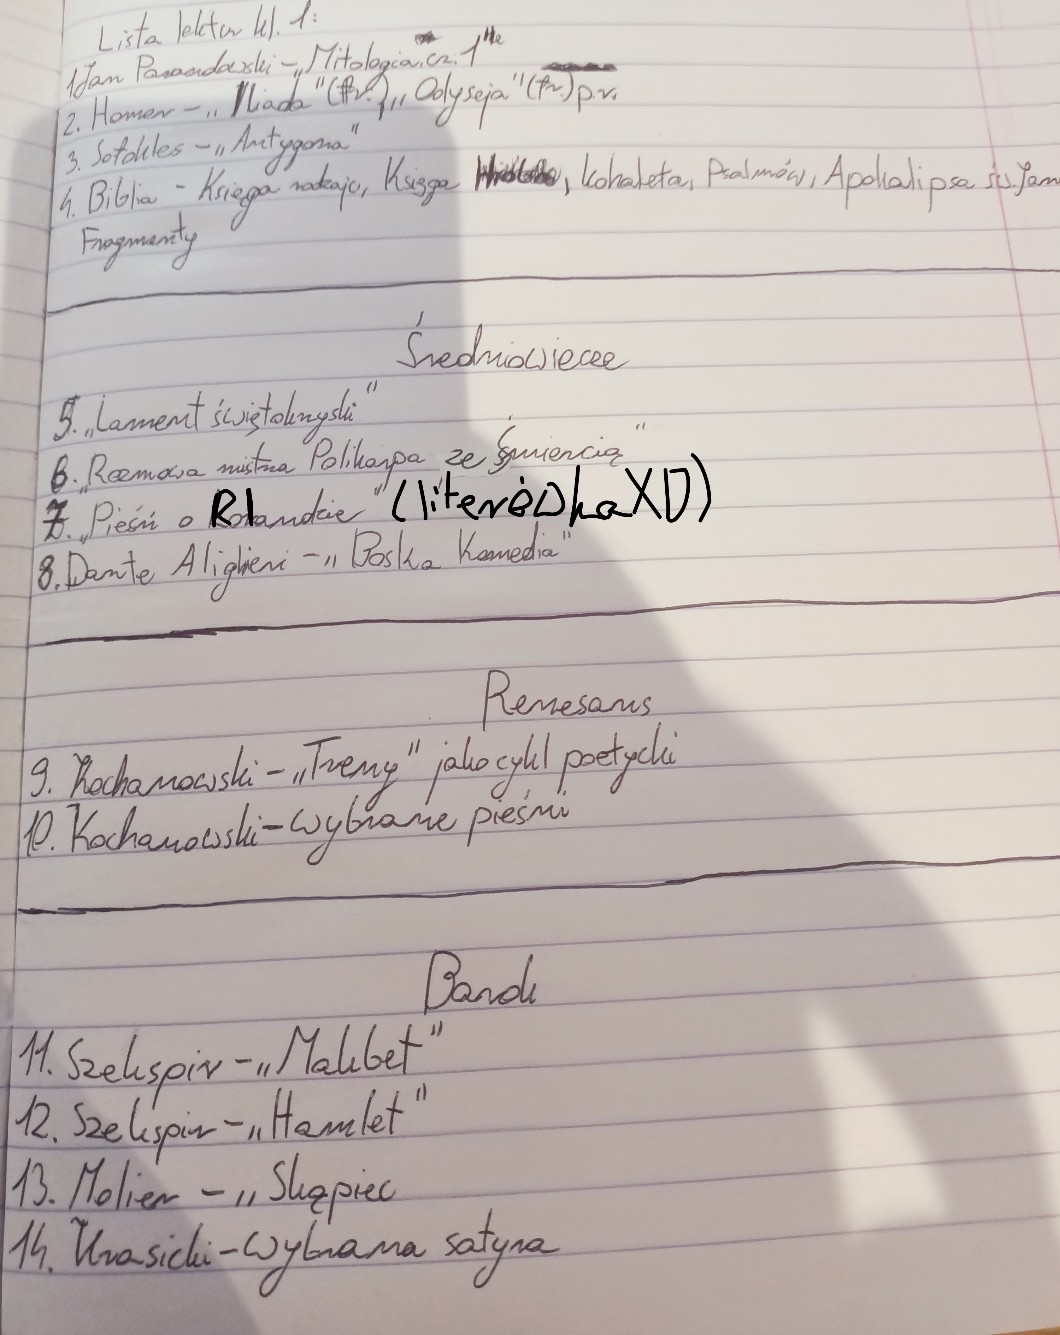 Lista lektur kl. 1:
1 Jan Parandowski - „Mitologia", cz. 1
2. Homer - „Iliada" (fr.), „Odyseja" (fr.) p.r.
3. Sofokles - „Antygona"
4. Biblia - Księga rodzaju, Księga , Koheleta, Psalmów, Apokalipsa św. Jana
Fragmenty
Średniowiecze
5. „Lament świętokrzyski"
6. „Rozmowa mistrza Polikarpa ze śmiercią"
7. „Pieśń o Rolandzie" (literówka XD)
8. Dante Alighieri - „Boska Komedia"
Renesans
9. Kochanowski - „Treny" jako cykl poetycki
10. Kochanowski - wybrane pieśni
Barok
11. Szekspir - „Makbet"
12. Szekspir - „Hamlet"
13. Molier - „Skąpiec
14. Krasicki - wybrana satyra